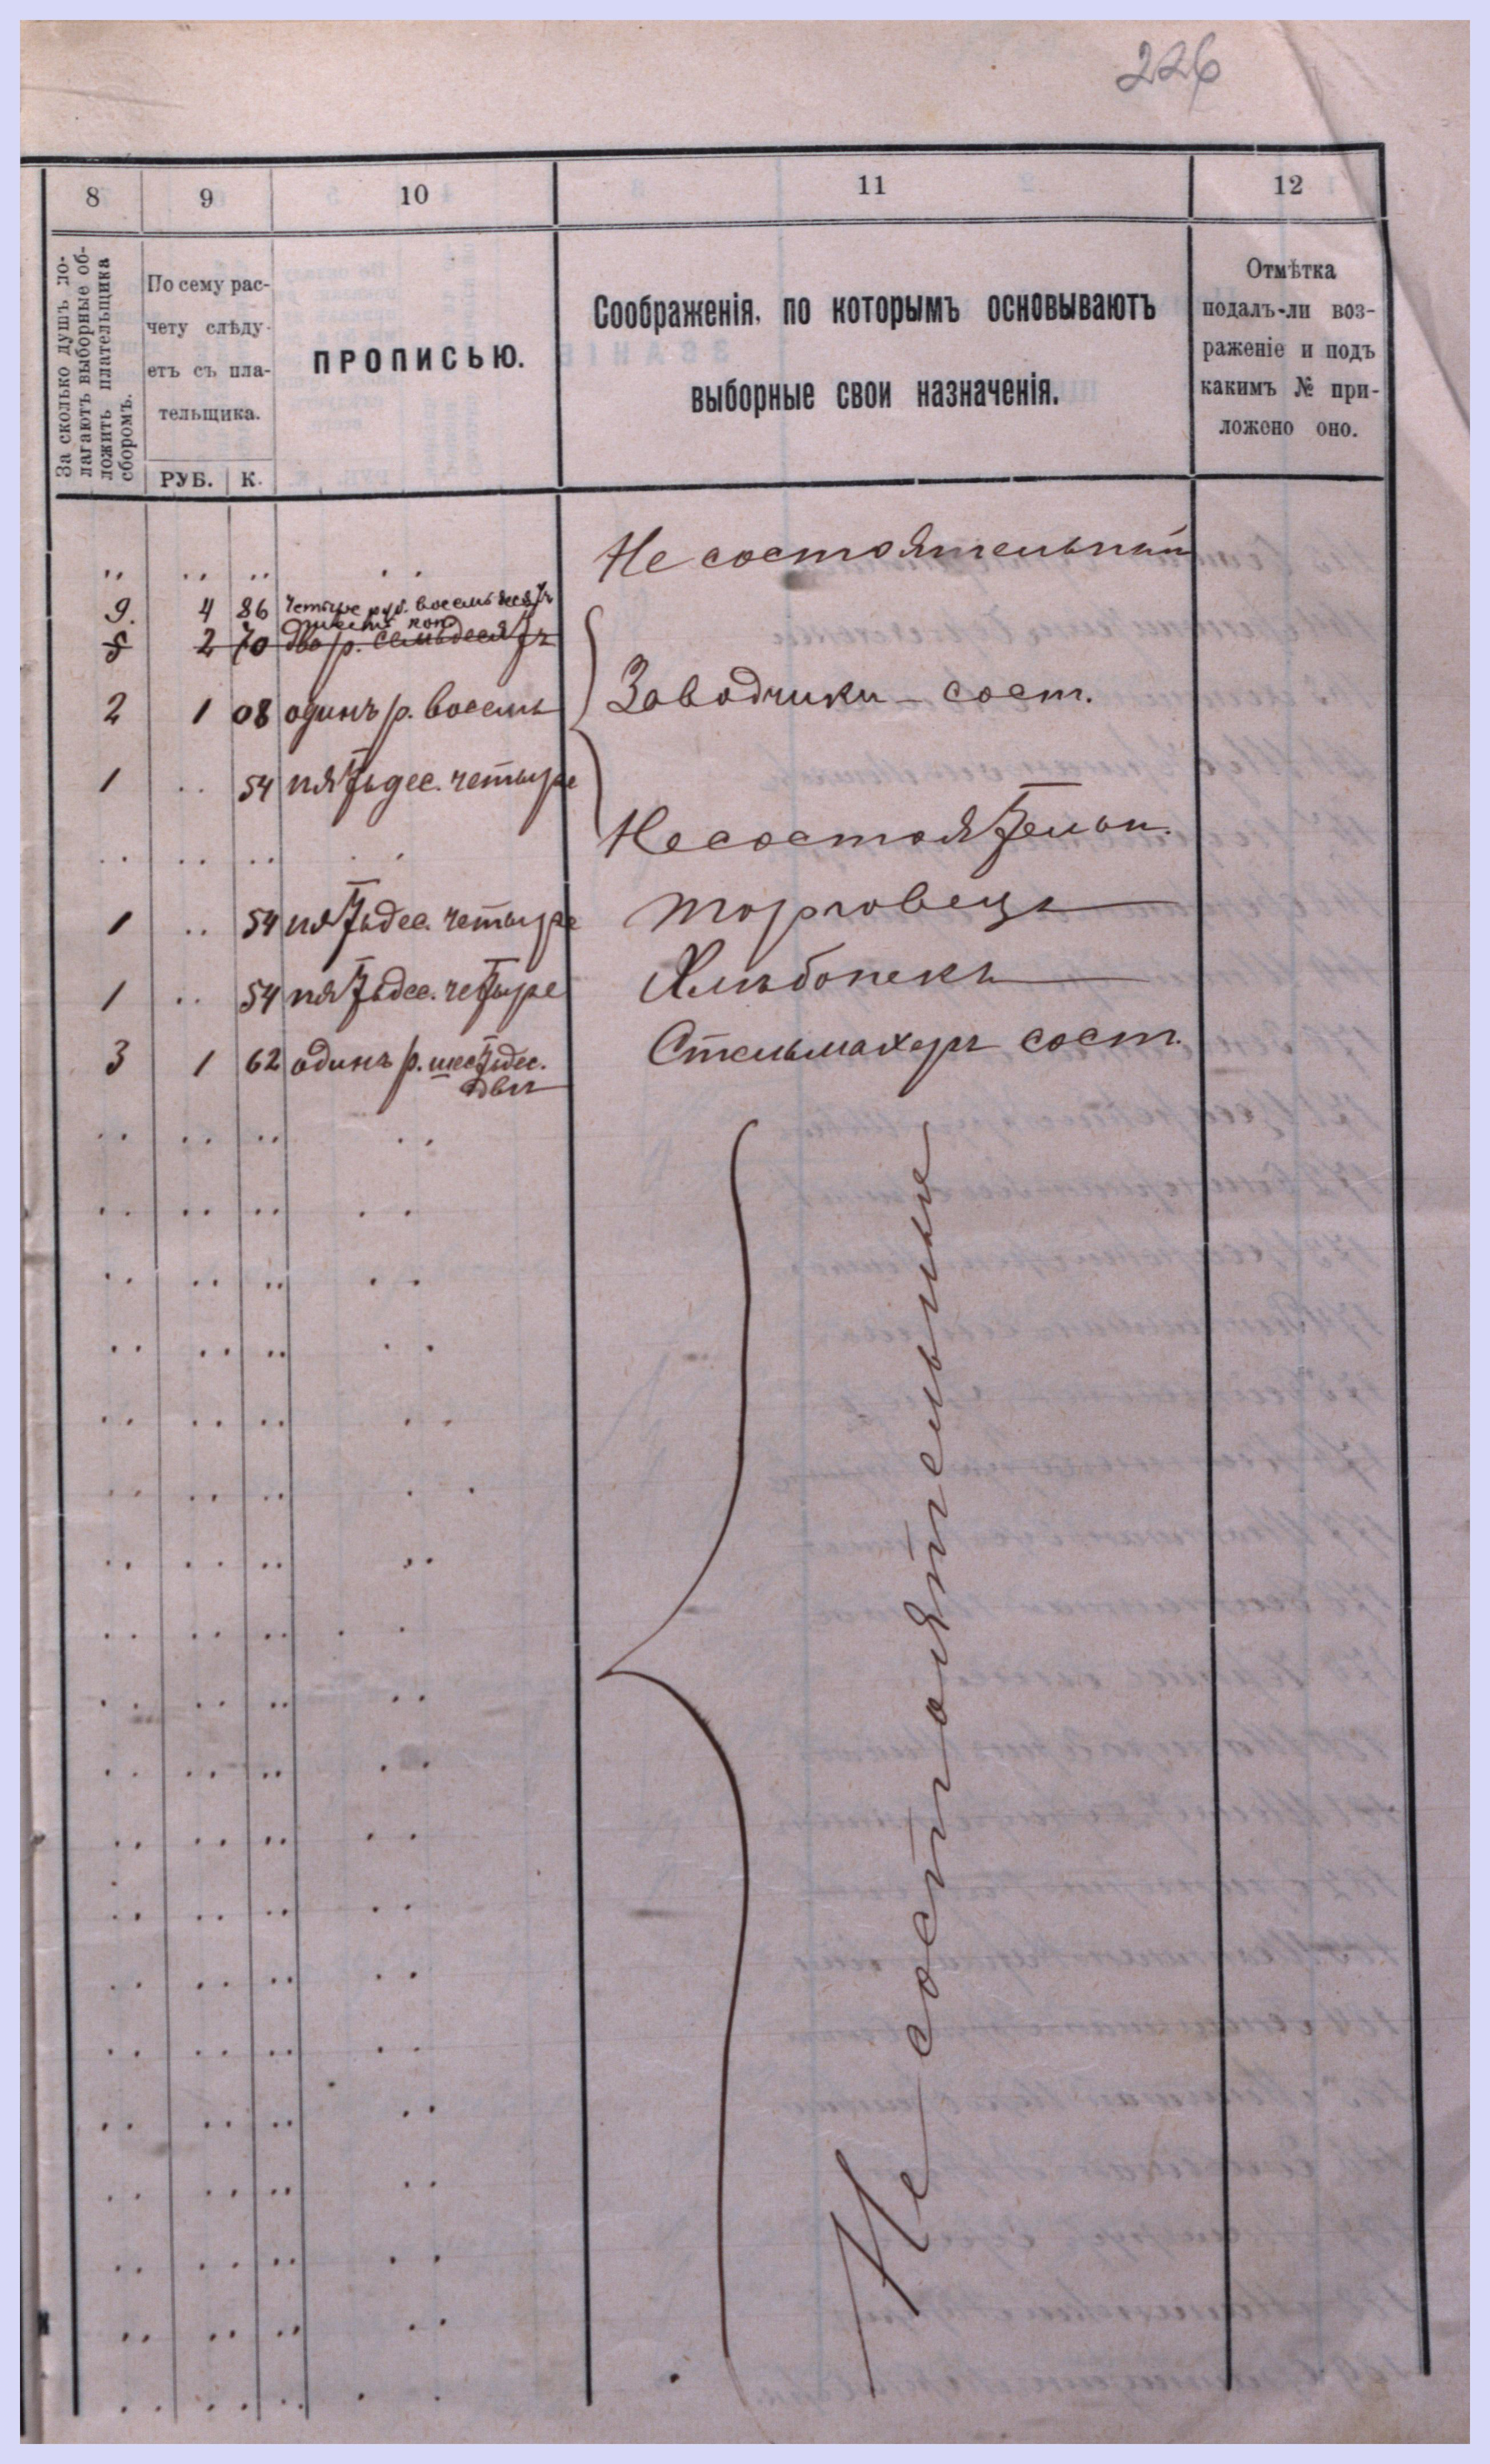 226
8 9 10 11 12
За сколько душъ по-
лагаютъ выборные об-
ложить плательщика
сборомъ.
По сему рас-
чету слѣду-
етъ съ пла-
тельщика.
РУБ. К.
ПРОПИСЬЮ.
Соображенія, по которымъ основываютъ
выборные свои назначенія.
Отмѣтка
подалъ-ли воз-
раженіе и подъ
какимъ № при-
ложено оно.
Не состоятельный
9. 4 86 Четыре руб. восемьдесятъ
шесть коп.
5 2 70 два р. семьдесятъ
2 1 08 одинъ р. восемь Заводчики - сост.
1 .. 54 пятьдес. четыре
Несостоятельн.
1 .. 54 пятьдес. четыре торговецъ
1 .. 54 пятьдес. четыре Хлѣбопекъ
3 1 62 одинъ р. шестьдес. Стельмахеръ сост.
двѣ
Не состоятельные